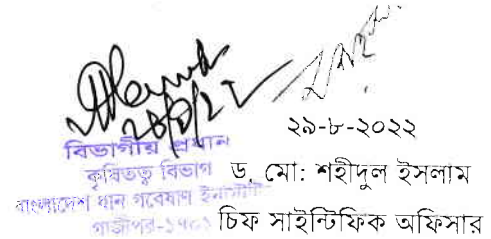 ২৯-৮-২০২২
বিভাগীয় প্রধান
কৃষিতত্ত্ব বিভাগ
বাংলাদেশ ধান গবেষণা
গাজীপুর-১৭০১
ড. মো: শহীদুল ইসলাম
চিফ সাইন্টিফিক অফিসার